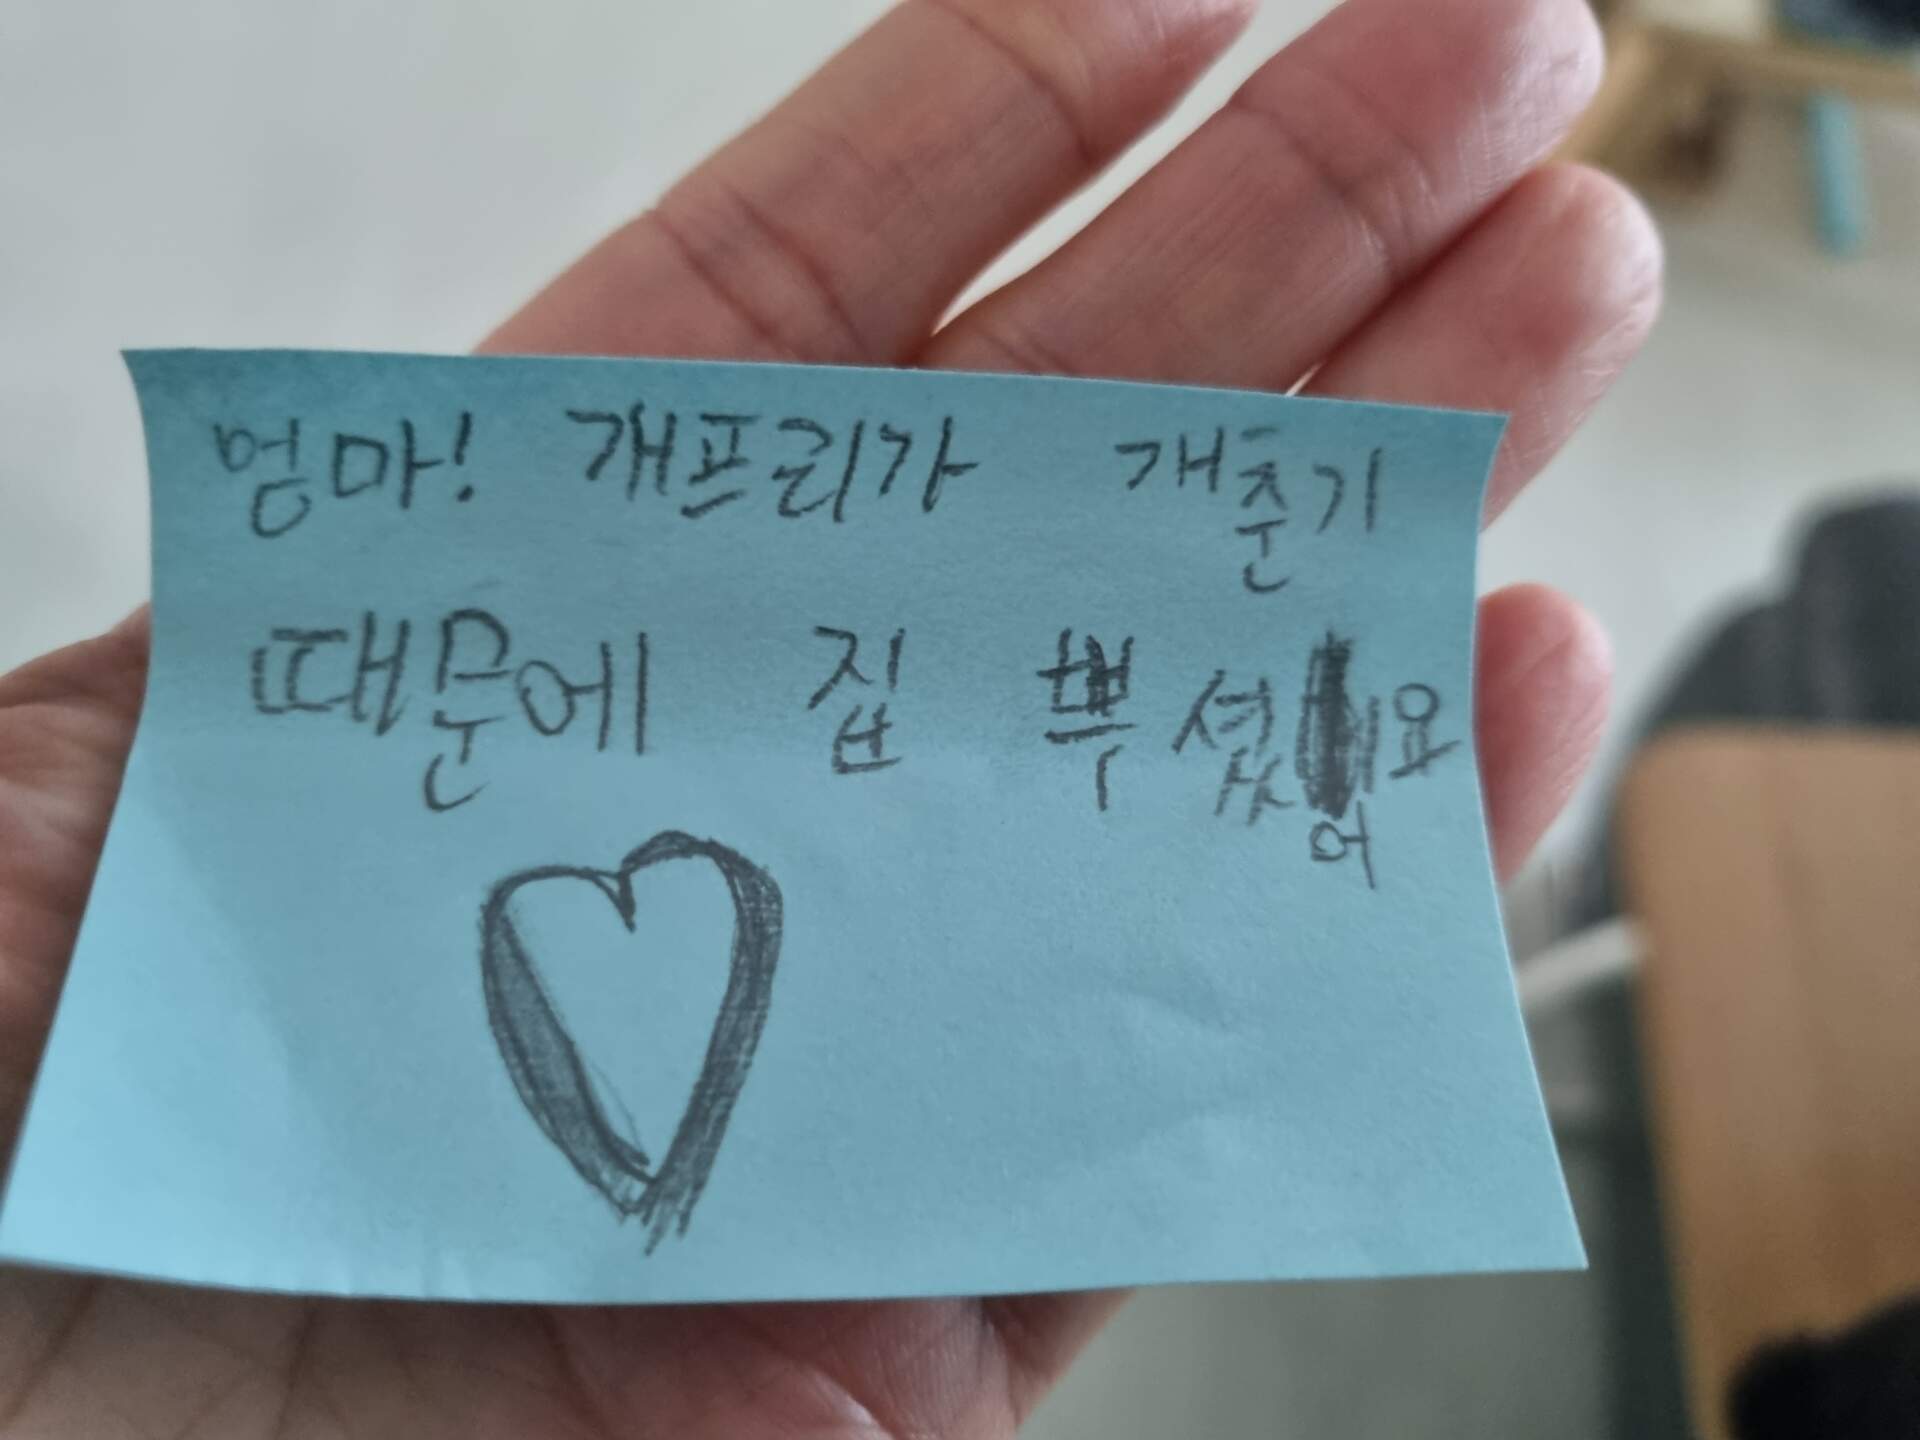 엄마! 개프리가 개춘기
때문에 집 뿌셨어요